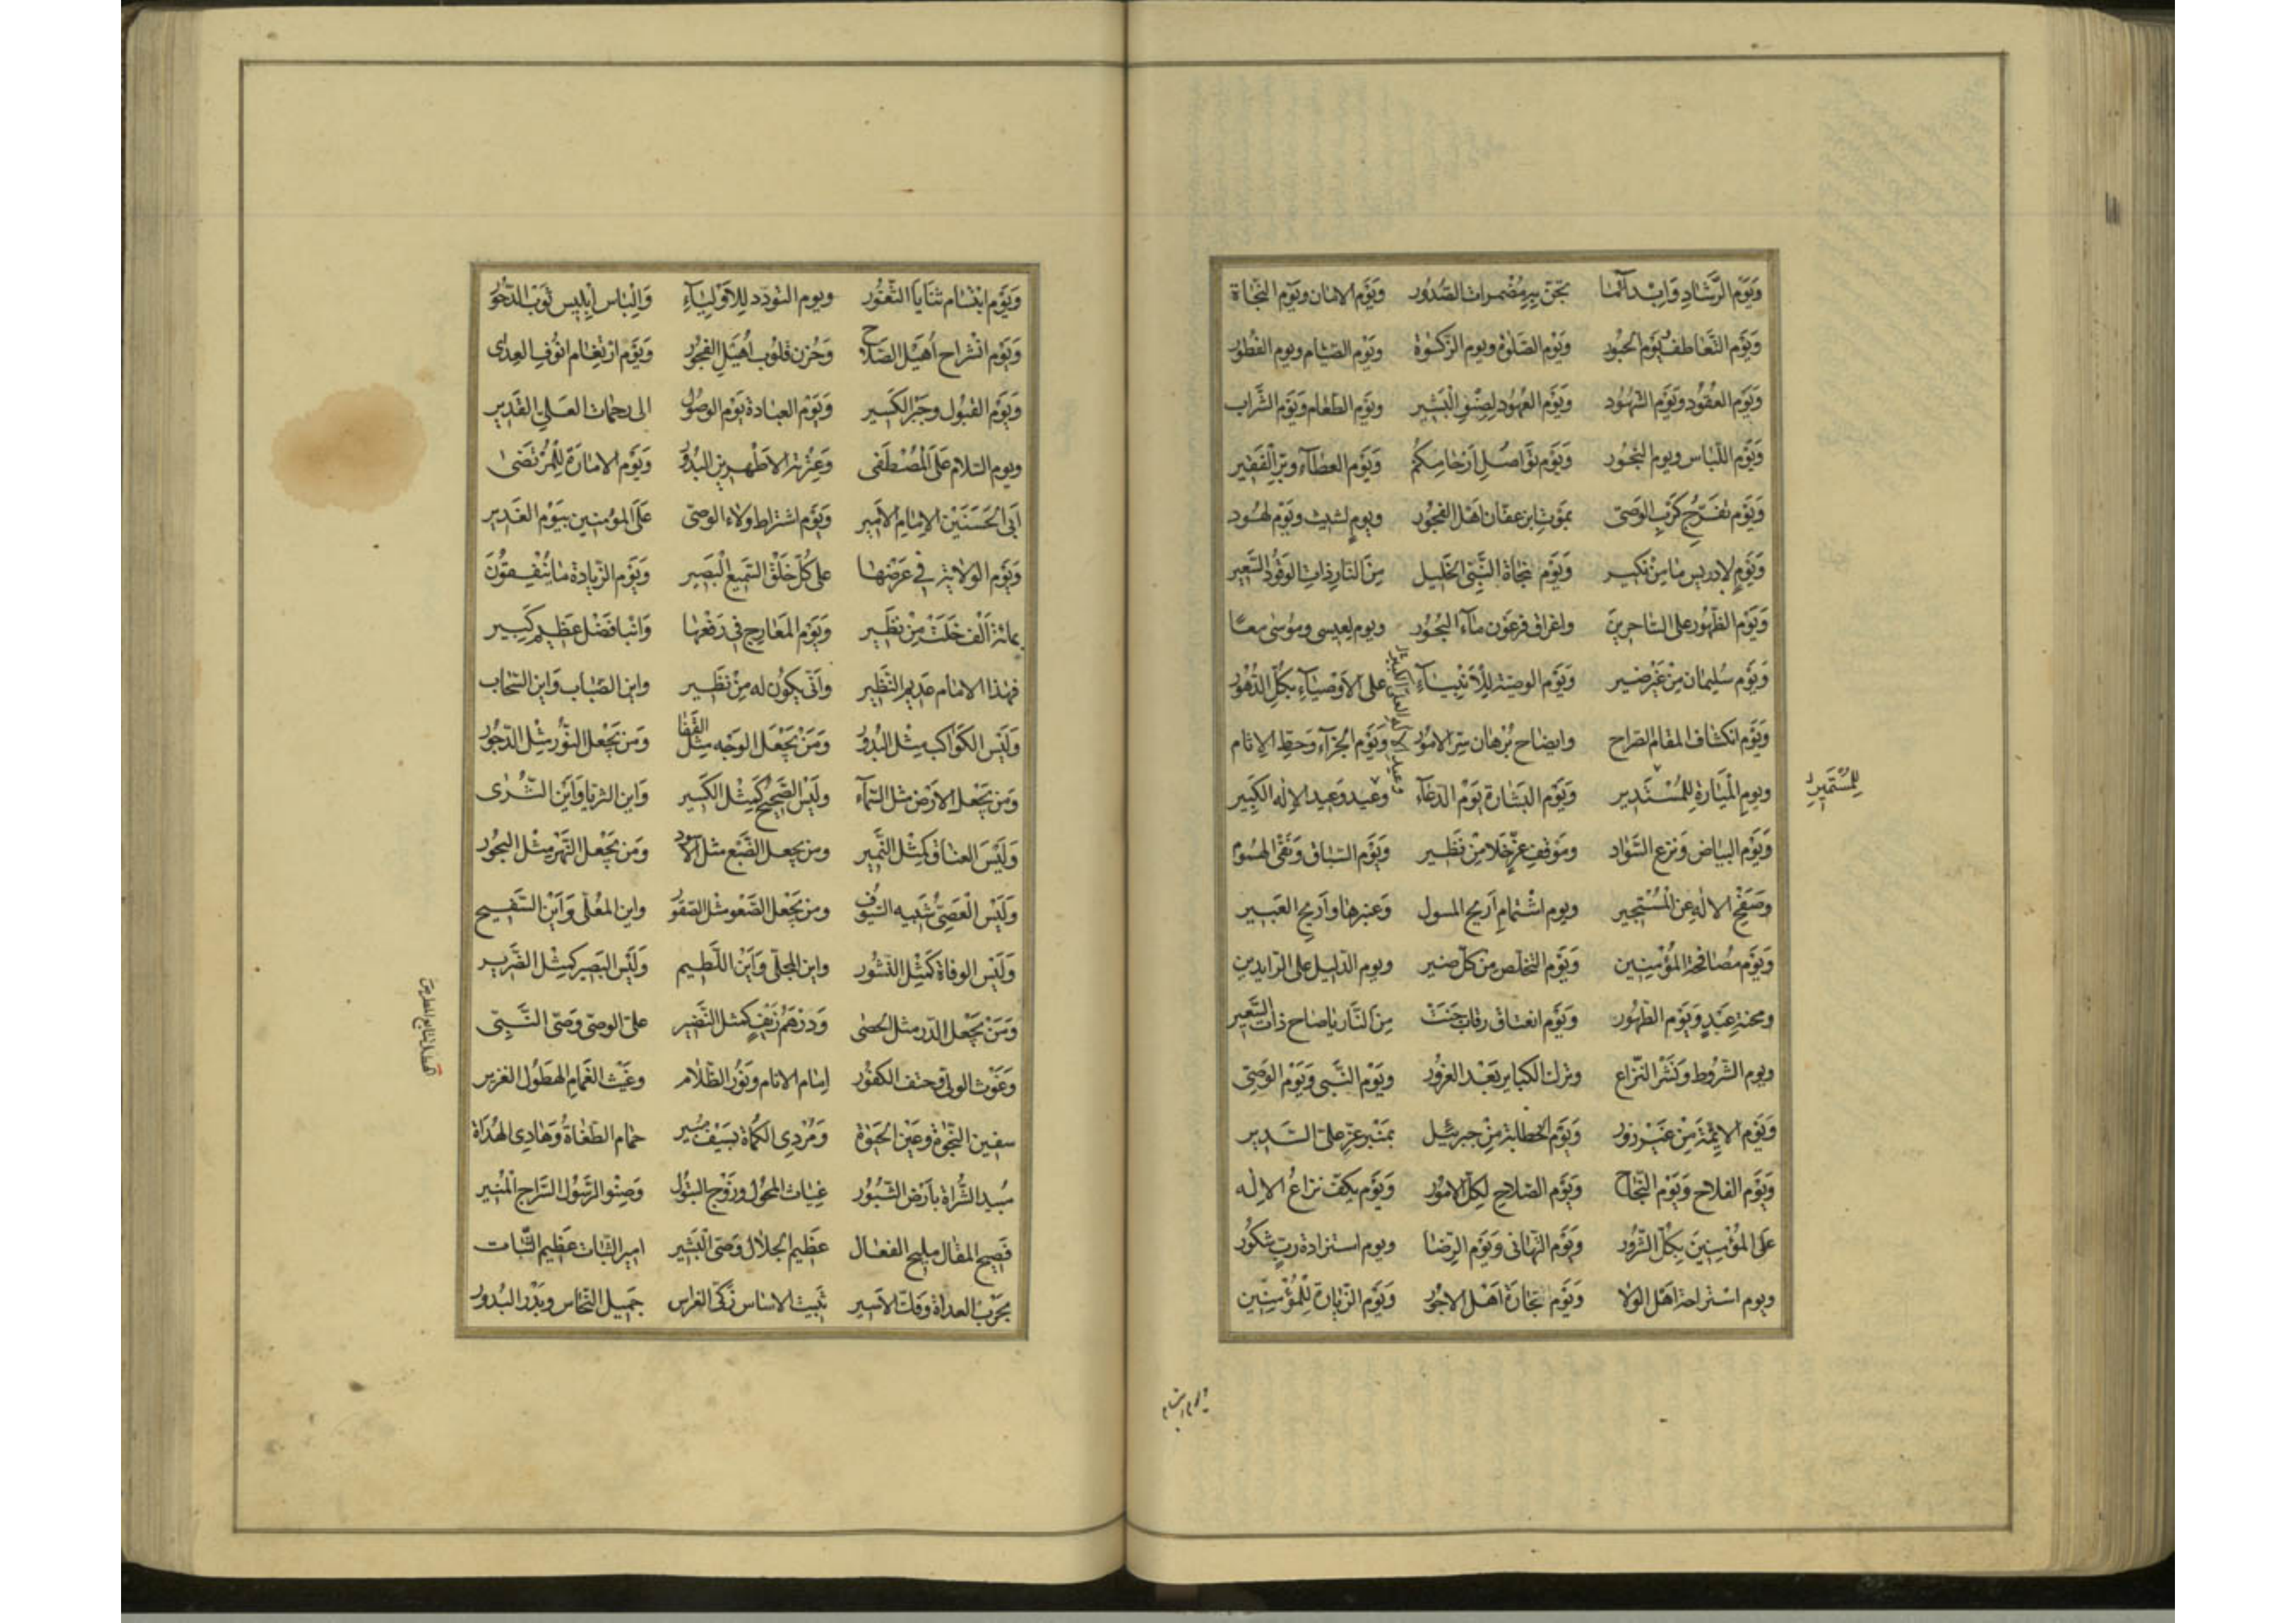 وَيَوْم الرَّشَادِ وَابْدآلما بحَقّ بِيرِمُضْمرات الصّدُور وَيَوْم الامان ويَوْم النّجاة
وَيَوْم التَّعَاطف يَوْم الحبُور وَيَوْم الصّلوة ويوم الزكوة ويَوْم الصّيام ويوم الفطور
وَيَوْم العقُود وَيَوْم الشّهُود وَيَوْم العُهُود لِصِنْوِ الْبَشِير وَيَوْم الطعَام وَيَوْم الشّراب
وَيَوْم اللّباس ويوم وَيَوْم تواصُلِ اَرْحامِكُم وَيَوْم العطآء وبرّ الْفَقير
وَيَوْم تفرّج كَرْبِ الوَصى بمَوْت ابن عفّان اَهْل الفجُور ويوم لشيث ويَوْم لهُود
وَيَوْم لادريس مامن نكير وَيَوْم نجاة النَّبى الخَليل مِنَ النار ذات الوقُود السّعير
وَيَوْم الظّهُور على السّاحرينَ واغراق فرعَون ماء البحُور ويوم لِعيسى ومُوسى معًا
وَيَوْم سُليمان مِنْ غَيْر ضير وَيَوْم الوصيّة للأنبياء على الاَوْصياء بكُلّ الدّهُور
وَيَوْم انكشاف المقام الصّراح وايضاح بُرهان سرّ الامور وَيَوْم الجزآء وَحَطّ الاثام
ويوم للمُسْتَدير وَيَوْم البشارة يَوْم الدعآء وعيد وَعيد الاِله الكَبير
للمُسْتَمير
وَيَوْم البياض وَنزع السّواد ومَوقف عِزّ خلا مِنْ نَظير وَيَوْم السّباق وَنَفْى الهُمُوم
وصَفْح الالهِ عَنِ الْمُسْتَجير ويوم اشْتمامِ اَريج وَعنبرها وَاَريج العَبير
وَيَوْم مُصَافحة المُؤْمِنينَ وَيَوْم التخلّص مِن كلّ ضير ويوم الدّليل على الرّايدين
ومحنةِ عَبْدٍ وَيَوْم الطهُور وَيَوْم انعتاق رقاب جَنَتْ مِنَ النّار ياصاح ذات السّعير
ويوم الشّروط وَنَشْر النّزاع وترك الكباير بَعْد الغرُور وَيَوْم النَّبى وَيَوْم الوَصِىّ
وَيَوْم الائمّة مِن غَيْر زور وَيَوْم الخطابة مِن جبرئيل بمَنبر عِزّ على السّدير
وَيَوْم الفلاح وَيَوْم النّجاح وَيَوْم الصّلاح لِكلّ الامُور وَيَوْم يكفّ نزاعُ الاِله
عَلى المُؤْمِنينَ بِكُلّ السُّرُور وَيَوْم التّهانى وَيَوْم الرّضا ويوم استزادة ربّ شكور
ويوم استراحة اهل الولا وَيَوْم تجارَة اَهْل الاجُور وَيَوْم الزّيارة لِلْمُؤْمِنين
ويوم ابتسام
وَيَوْم ابتسام ثنايا الثّغُور ويوم التودّد للاَوْلياء وَاِلْباس اِبْليس ثوب
وَيَوْم انشراح اُهَيْل الصّلاح وَحُزن قلُوب اُهَيْلِ الفجُور وَيَوْم ارتغام انُوف العِدى
وَيَوْم القبُول وجَبْر الكَسير وَيَوْم العبادة يَوْم الوصُول الى رحمات العَلى القَدير
ويوم السّلام عَلَى المُصْطَفى وَعِتْرته الاَطْهرين البدُور وَيَوْم الامارَة لِلْمُرْتَضى
اَبى الحَسَنَيْن الاِمام الاَمير وَيَوْم اشتراط ولاء الوصىّ عَلَى المؤمِنين بيَوْم الغَدير
وَيَوْم الولاية فى عَرْضها على كُلّ خَلْق السّميع الْبَصير وَيَوْم الزّيادة ما يُنْفِقُونَ
بمائة اَلْف خَلَتْ مِنْ نظير وَيَوْم المَعارج فى رَفْعها وَانْبا فَضْل عَظيم كَبير
فهذا الامام عديم النّظير واَنّى يكون له مِنْ نظير واين الضّباب وَاين السّحاب
وَلَيْس الكَواكب مِثْل البُدُور وَمَنْ يَجْعَل الوَجه مِثْل القَفا وَمَن يَجْعل النُّور مِثْل الدّجُور
وَمَن يَجْعَل الاَرْض مثل السّماء ولَيْس الصّحيح كَمِثْل الكَسير واين الثريا وَاَين الثّرى
وَلَيْسَ العناق كَمِثْل ومن يجعل الضّبُع مثل الاسود وَمَن يَجْعَل النّهر مِثْل البحُور
وَلَيْس الْعَصِىّ شَبيه السّيوف ومَن يَجْعَل الصّعو مثل الصّقُور واين المعلّى وَاَيْن السّفيح
وَلَيْس الوفاة كَمِثْل النشُور واين المجلّى وَاَيْن اللّطيم وَلَيْس البَصير كَمِثْل الضّرير
وَمَنْ يَجْعَل الدّر مثل الحصَى وَدِرْهَمُ زَيْفٍ كمثل النّضير علىّ الوصىّ وَصىّ النّبىّ
وَغَوْث الولىّ وحتف الكفُور اِمام الانام ونُور الظّلام وغَيْث الغَمامِ الهطُول الغزير
سفين النّجوة وعَيْن الحَيوة وَمُرْدى الكُماة بسَيْف مُبير حِمام الطّغاة وَهادى الهُداة
مُبيد الشُّراة باَرْض الثّبُور غياث المحُول وَزَوْج البَتُول وَصِنو الرّسُول السّراج المُنير
فَصيح المقال مليح الفعَال عَظيم الجلال وَصىّ البَشير امير الثّبات
بحَرْب العداة وفكّ الاَسير ثَبيت الاساس زكىّ الغِراس جميل النّحاس وبَدْر البُدور